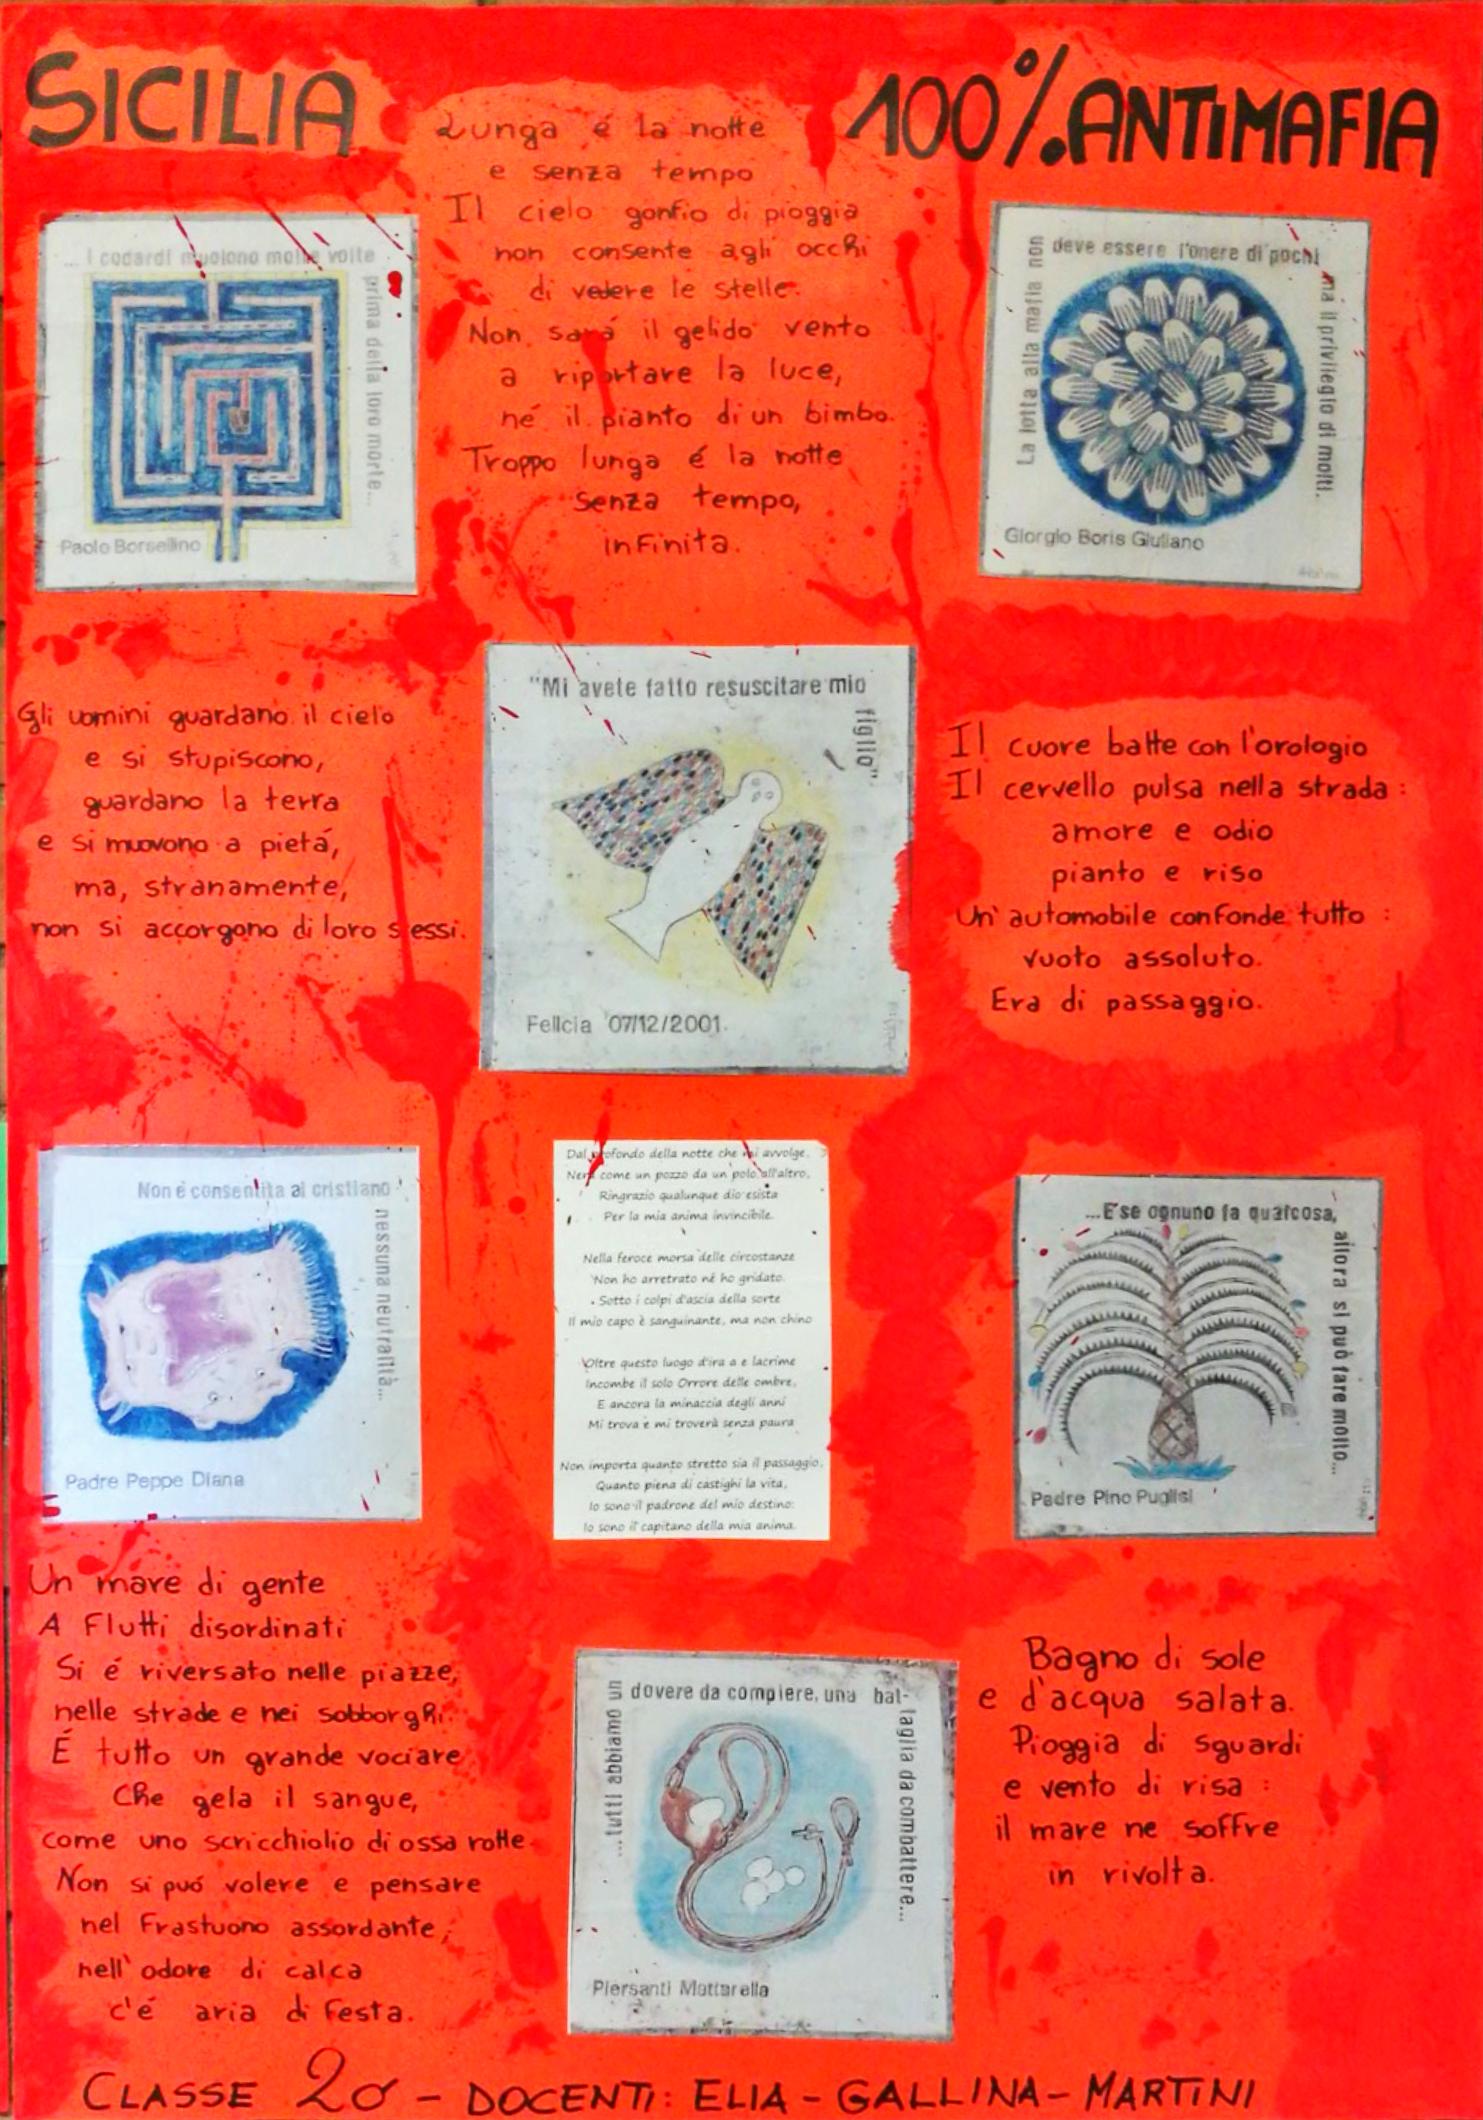 SICILIA
100% ANTIMAFIA
Lunga é la notte
e senza tempo
Il cielo gonfio di pioggia
non consente agli occhi
di vedere le stelle.
Non sará il gelido vento
a riportare la luce,
né il pianto di un bimbo.
Troppo lunga é la notte
senza tempo,
infinita.
... I codardi muoiono molte volte
prima della loro morte...
Paolo Borsellino
La lotta alla mafia non
deve essere l'onere di pochi
ma il privilegio di molti.
Giorgio Boris Giuliano
Gli uomini guardano il cielo
e si stupiscono,
guardano la terra
e si muovono a pietá,
ma, stranamente,
non si accorgono di loro stessi.
"Mi avete fatto resuscitare mio
figlio"
Felicia 07/12/2001
Il cuore batte con l'orologio
Il cervello pulsa nella strada:
amore e odio
pianto e riso
Un'automobile confonde tutto:
vuoto assoluto.
Era di passaggio.
Non è consentita al cristiano
nessuna neutralità...
Padre Peppe Diana
Dal profondo della notte che mi avvolge,
Nera come un pozzo da un polo all'altro,
Ringrazio qualunque dio esista
Per la mia anima invincibile.
Nella feroce morsa delle circostanze
Non ho arretrato né ho gridato.
Sotto i colpi d'ascia della sorte
Il mio capo è sanguinante, ma non chino
Oltre questo luogo d'ira a e lacrime
Incombe il solo Orrore delle ombre,
E ancora la minaccia degli anni
Mi trova e mi troverà senza paura
Non importa quanto stretto sia il passaggio,
Quanto piena di castighi la vita,
Io sono il padrone del mio destino:
Io sono il capitano della mia anima.
...E se ognuno fa qualcosa,
allora si può fare molto...
Padre Pino Puglisi
Un mare di gente
A flutti disordinati
Si é riversato nelle piazze,
nelle strade e nei sobborghi.
É tutto un grande vociare
Che gela il sangue,
come uno scricchiolio di ossa rotte.
Non si puó volere e pensare
nel frastuono assordante;
nell'odore di calca
c'é aria di festa.
...tutti abbiamo un
dovere da compiere, una bat-
taglia da combattere...
Piersanti Mattarella
Bagno di sole
e d'acqua salata.
Pioggia di sguardi
e vento di risa:
il mare ne soffre
in rivolta.
CLASSE 2σ - DOCENTI: ELIA - GALLINA - MARTINI